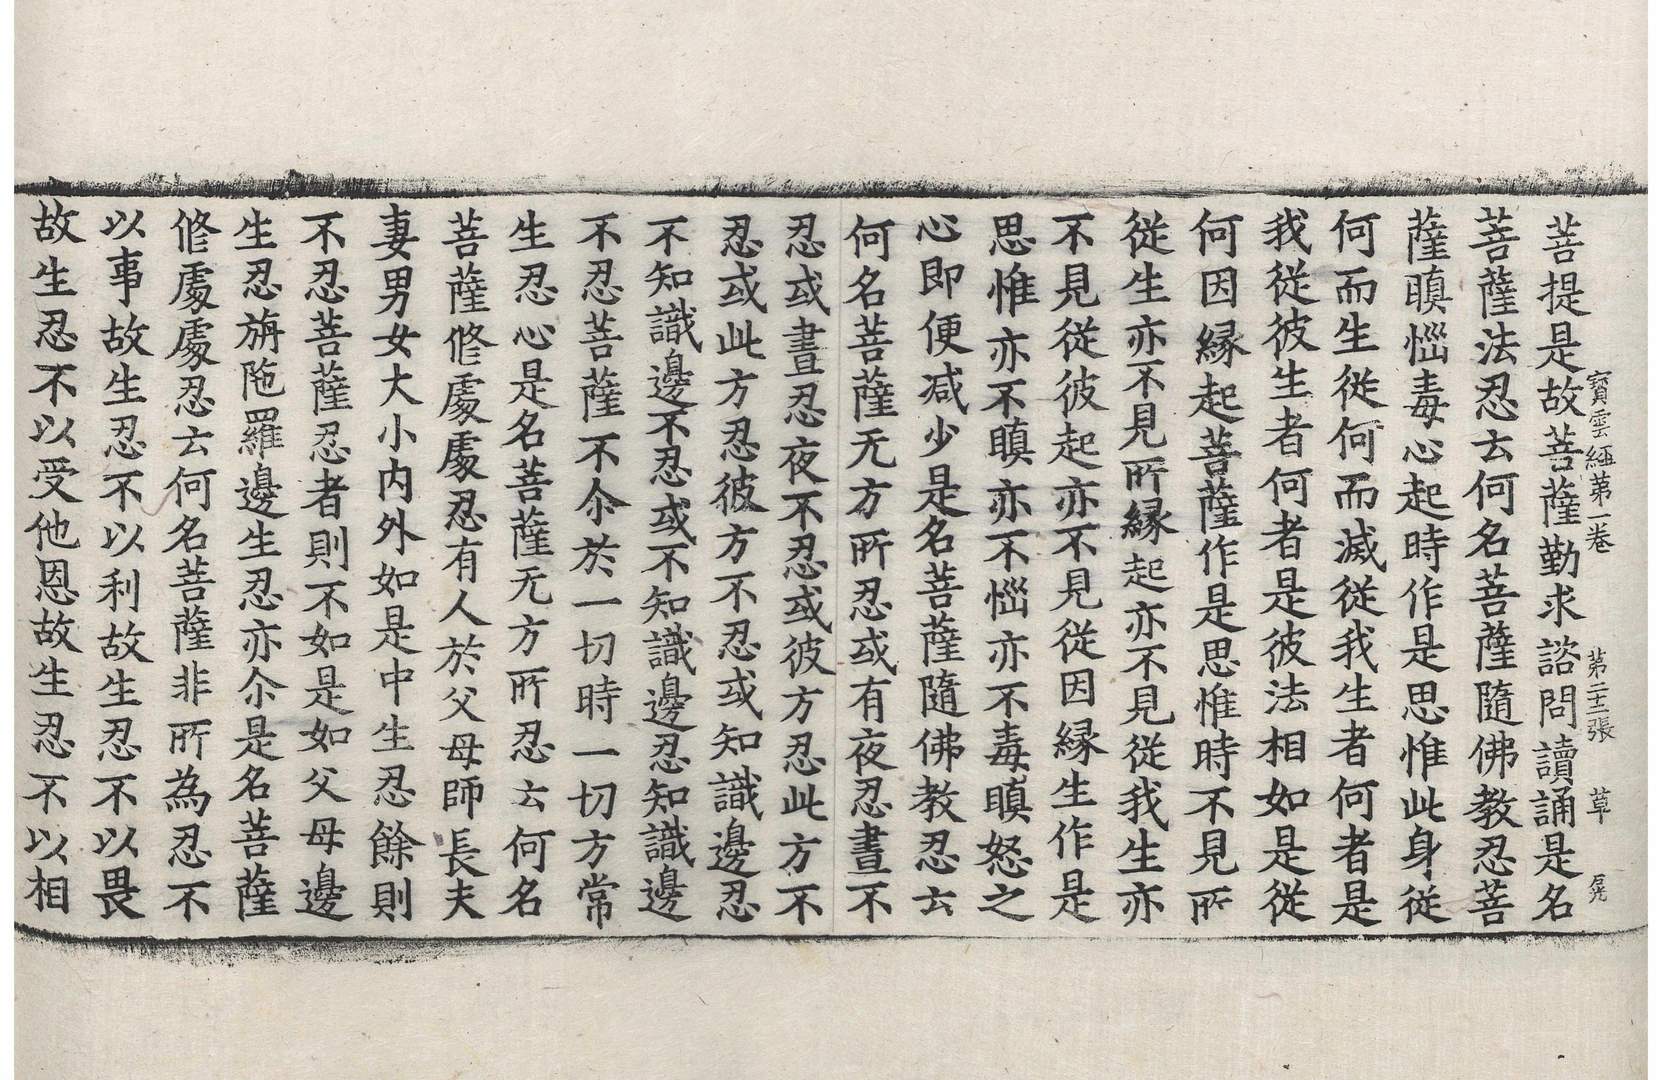 寶雲經第一卷 第二十二張 草
菩提是故菩薩勤求諮問讀誦是名
菩薩法忍云何名菩薩隨佛教忍菩
薩瞋惱毒心起時作是思惟此身從
何而生從何而滅從我生者何者是
我從彼生者何者是彼法相如是從
何因緣起菩薩作是思惟時不見所
從生亦不見所緣起亦不見從我生亦
不見從彼起亦不見從因緣生作是
思惟亦不瞋亦不惱亦不毒瞋怒之
心即便减少是名菩薩隨佛教忍云
何名菩薩无方所忍或有夜忍晝不
忍或晝忍夜不忍或彼方忍此方不
忍或此方忍彼方不忍或知識邊忍
不知識邊不忍或不知識邊忍知識邊
不忍菩薩不尒於一切時一切方常
生忍心是名菩薩无方所忍云何名
菩薩修處處忍有人於父母師長夫
妻男女大小内外如是中生忍餘則
不忍菩薩忍者則不如是如父母邊
生忍旃陁羅邊生忍亦尒是名菩薩
修處處忍云何名菩薩非所為忍不
以事故生忍不以利故生忍不以畏
故生忍不以受他恩故生忍不以相